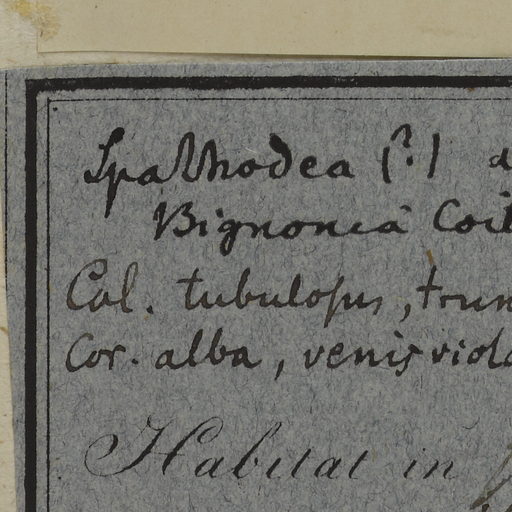 Spathodea (?) a
Bignonia Coil
Cal. tubulosus, trun
Cor. alba, venis viola
Habitat in